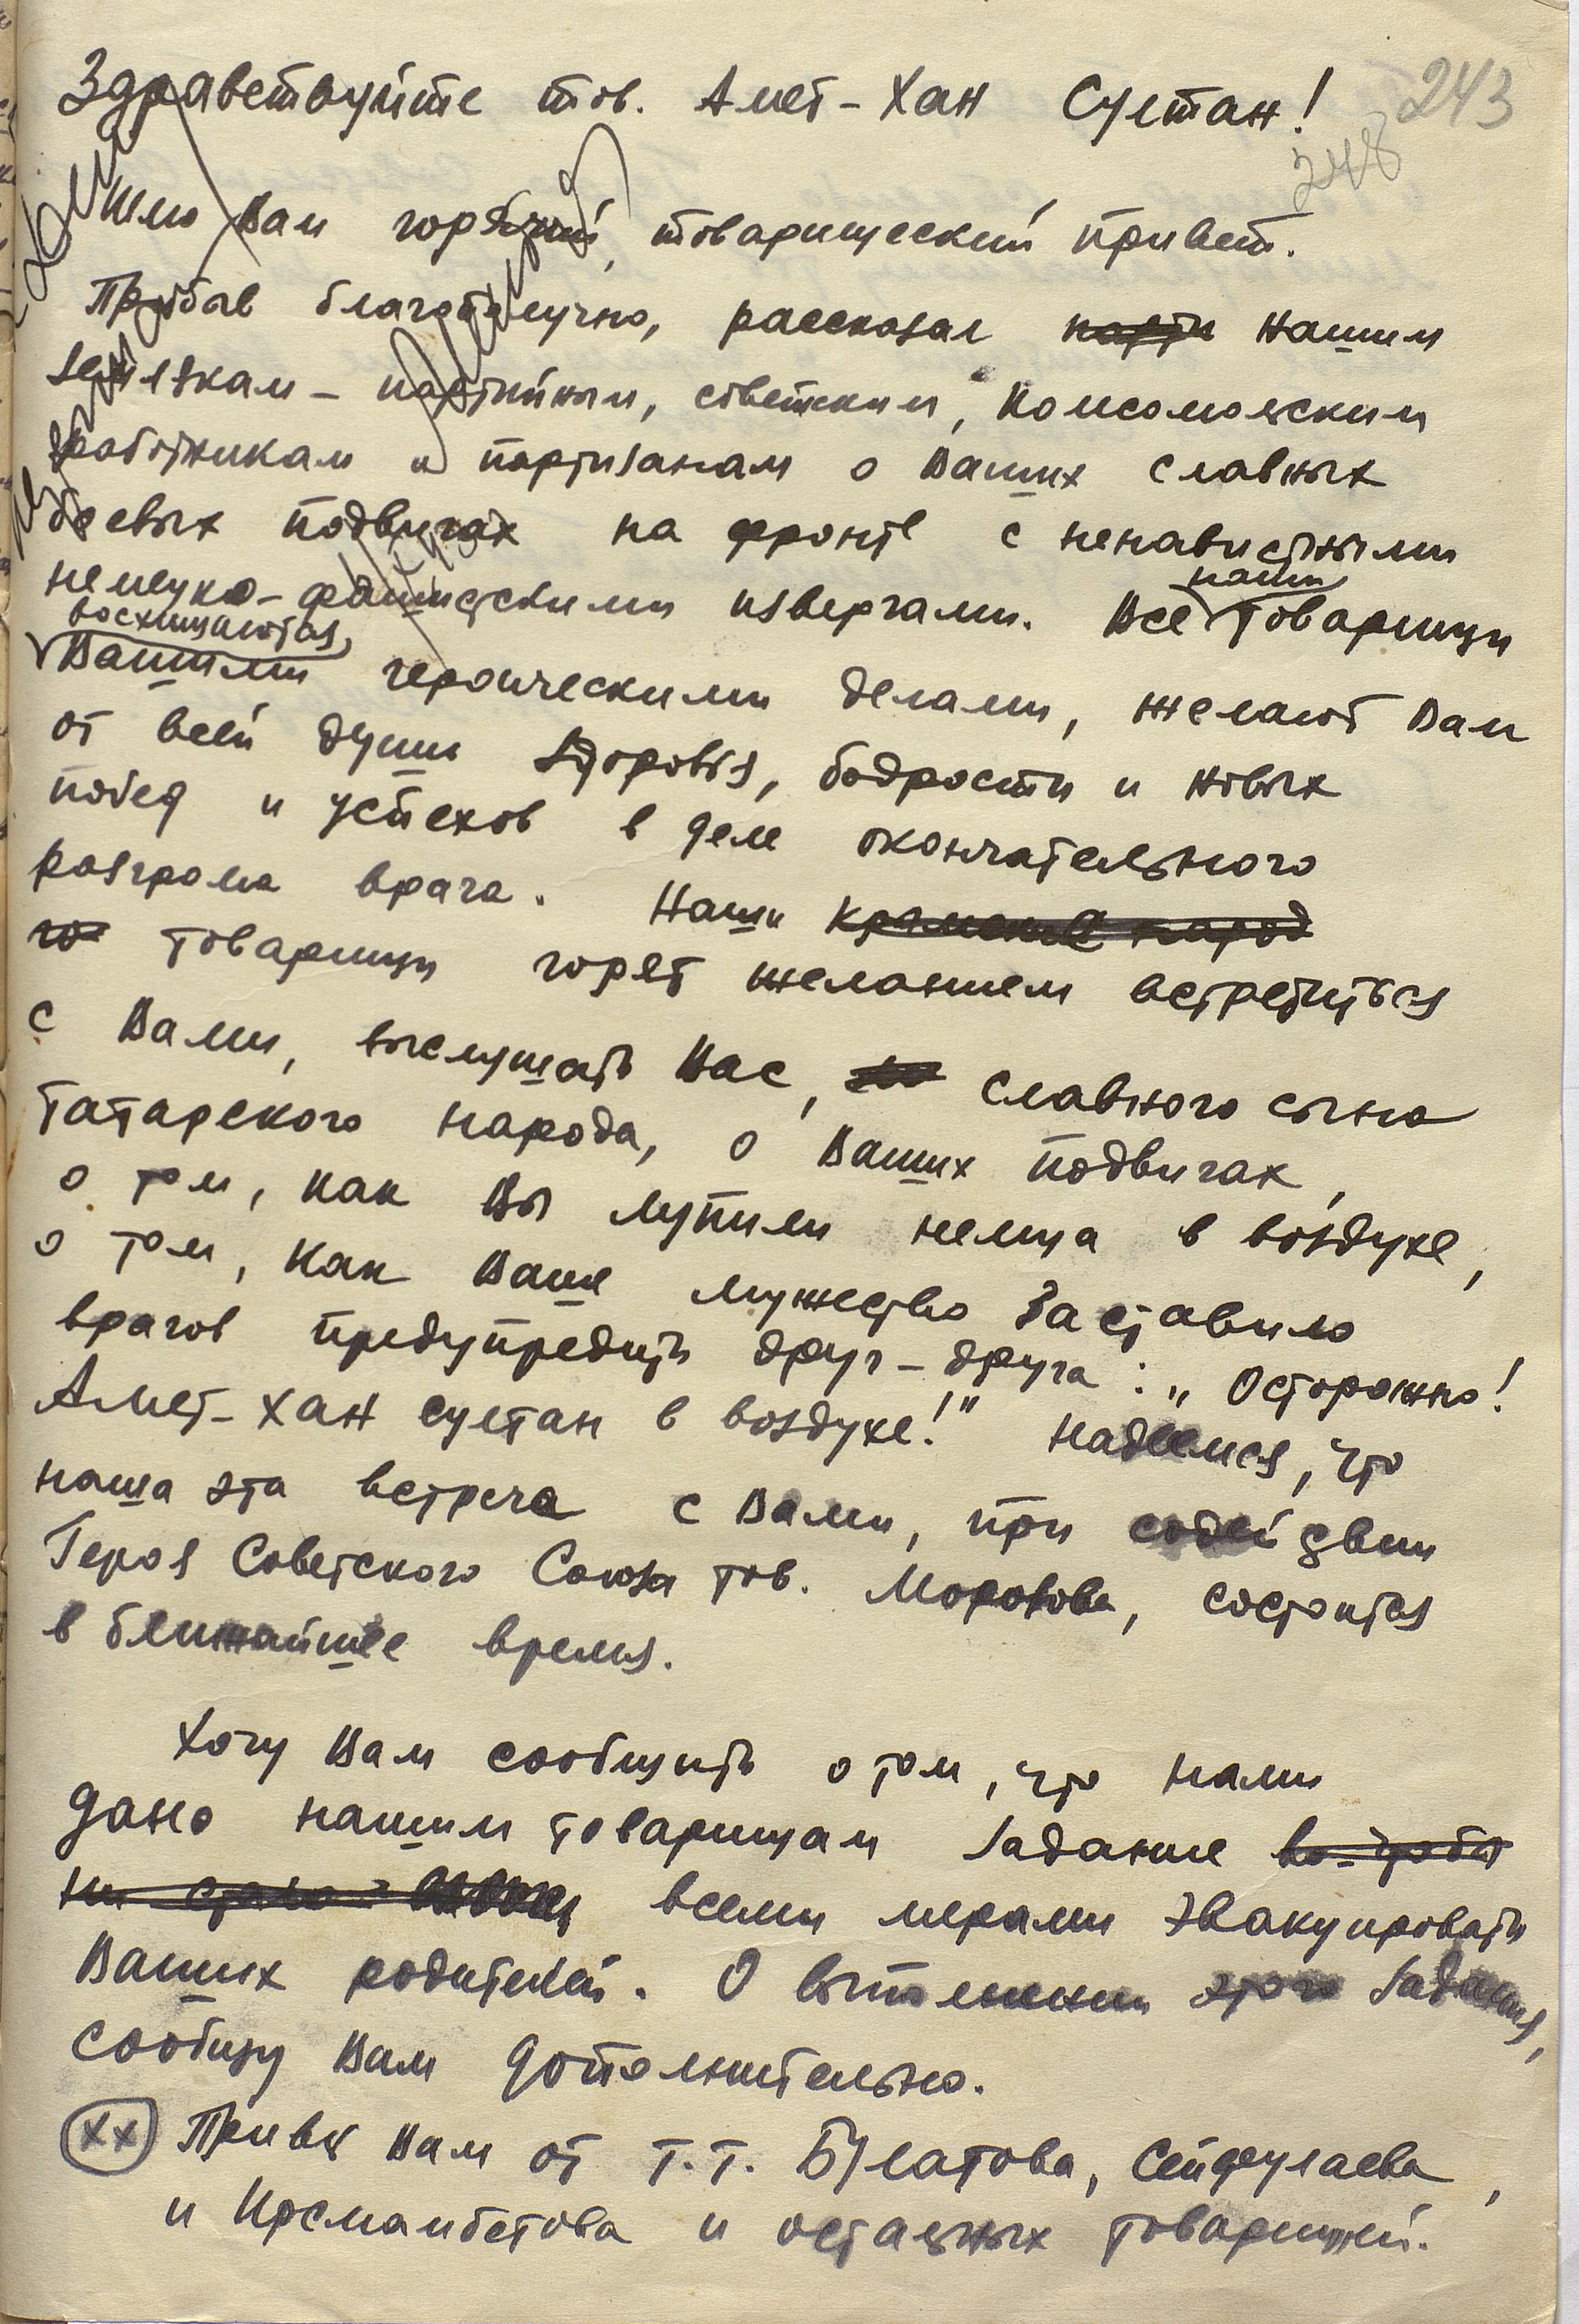 243
Здраветвуйте тов. Амет-Хан Султан!
248
Шлю Вам горячий, товарищеский привет.
Прибыв благополучно, рассказал нашим
землякам - партийным, советским, комсомольским
работникам и партизанам о Ваших славных
боевых подвигах на фронте с ненавистными
немецко-фашистскими извергами. Все наши товарищи
восхищаются
Вашими героическими делами, желают Вам
от всей души здоровья, бодрости и новых
побед и успехов в деле окончательного
разгрома врага. Наши крымский народ
го товарищи горят желанием встретиться
с Вами, выслушать Вас, славного сына
татарского народа, о Ваших подвигах,
о том, как Вы лупили немца в воздухе,
о том, как Ваше мужество заставило
врагов предупредить друг-друга: „Осторожно!
Амет-Хан султан в воздухе!" Надеемся, что
наша эта встреча с Вами, при содействии
Героя Советского Союза тов. Морозова, состоится
в ближайшее время.
Хочу Вам сообщить о том, что нами
дано нашим товарищам задание
всеми мерами эвакуировать
Ваших родителей. О выполнении этого задания,
сообщу Вам дополнительно.
хх Привет Вам от т.т. Булатова, Сейфулаева,
и Ирсмамбетова и остальных товарищей.